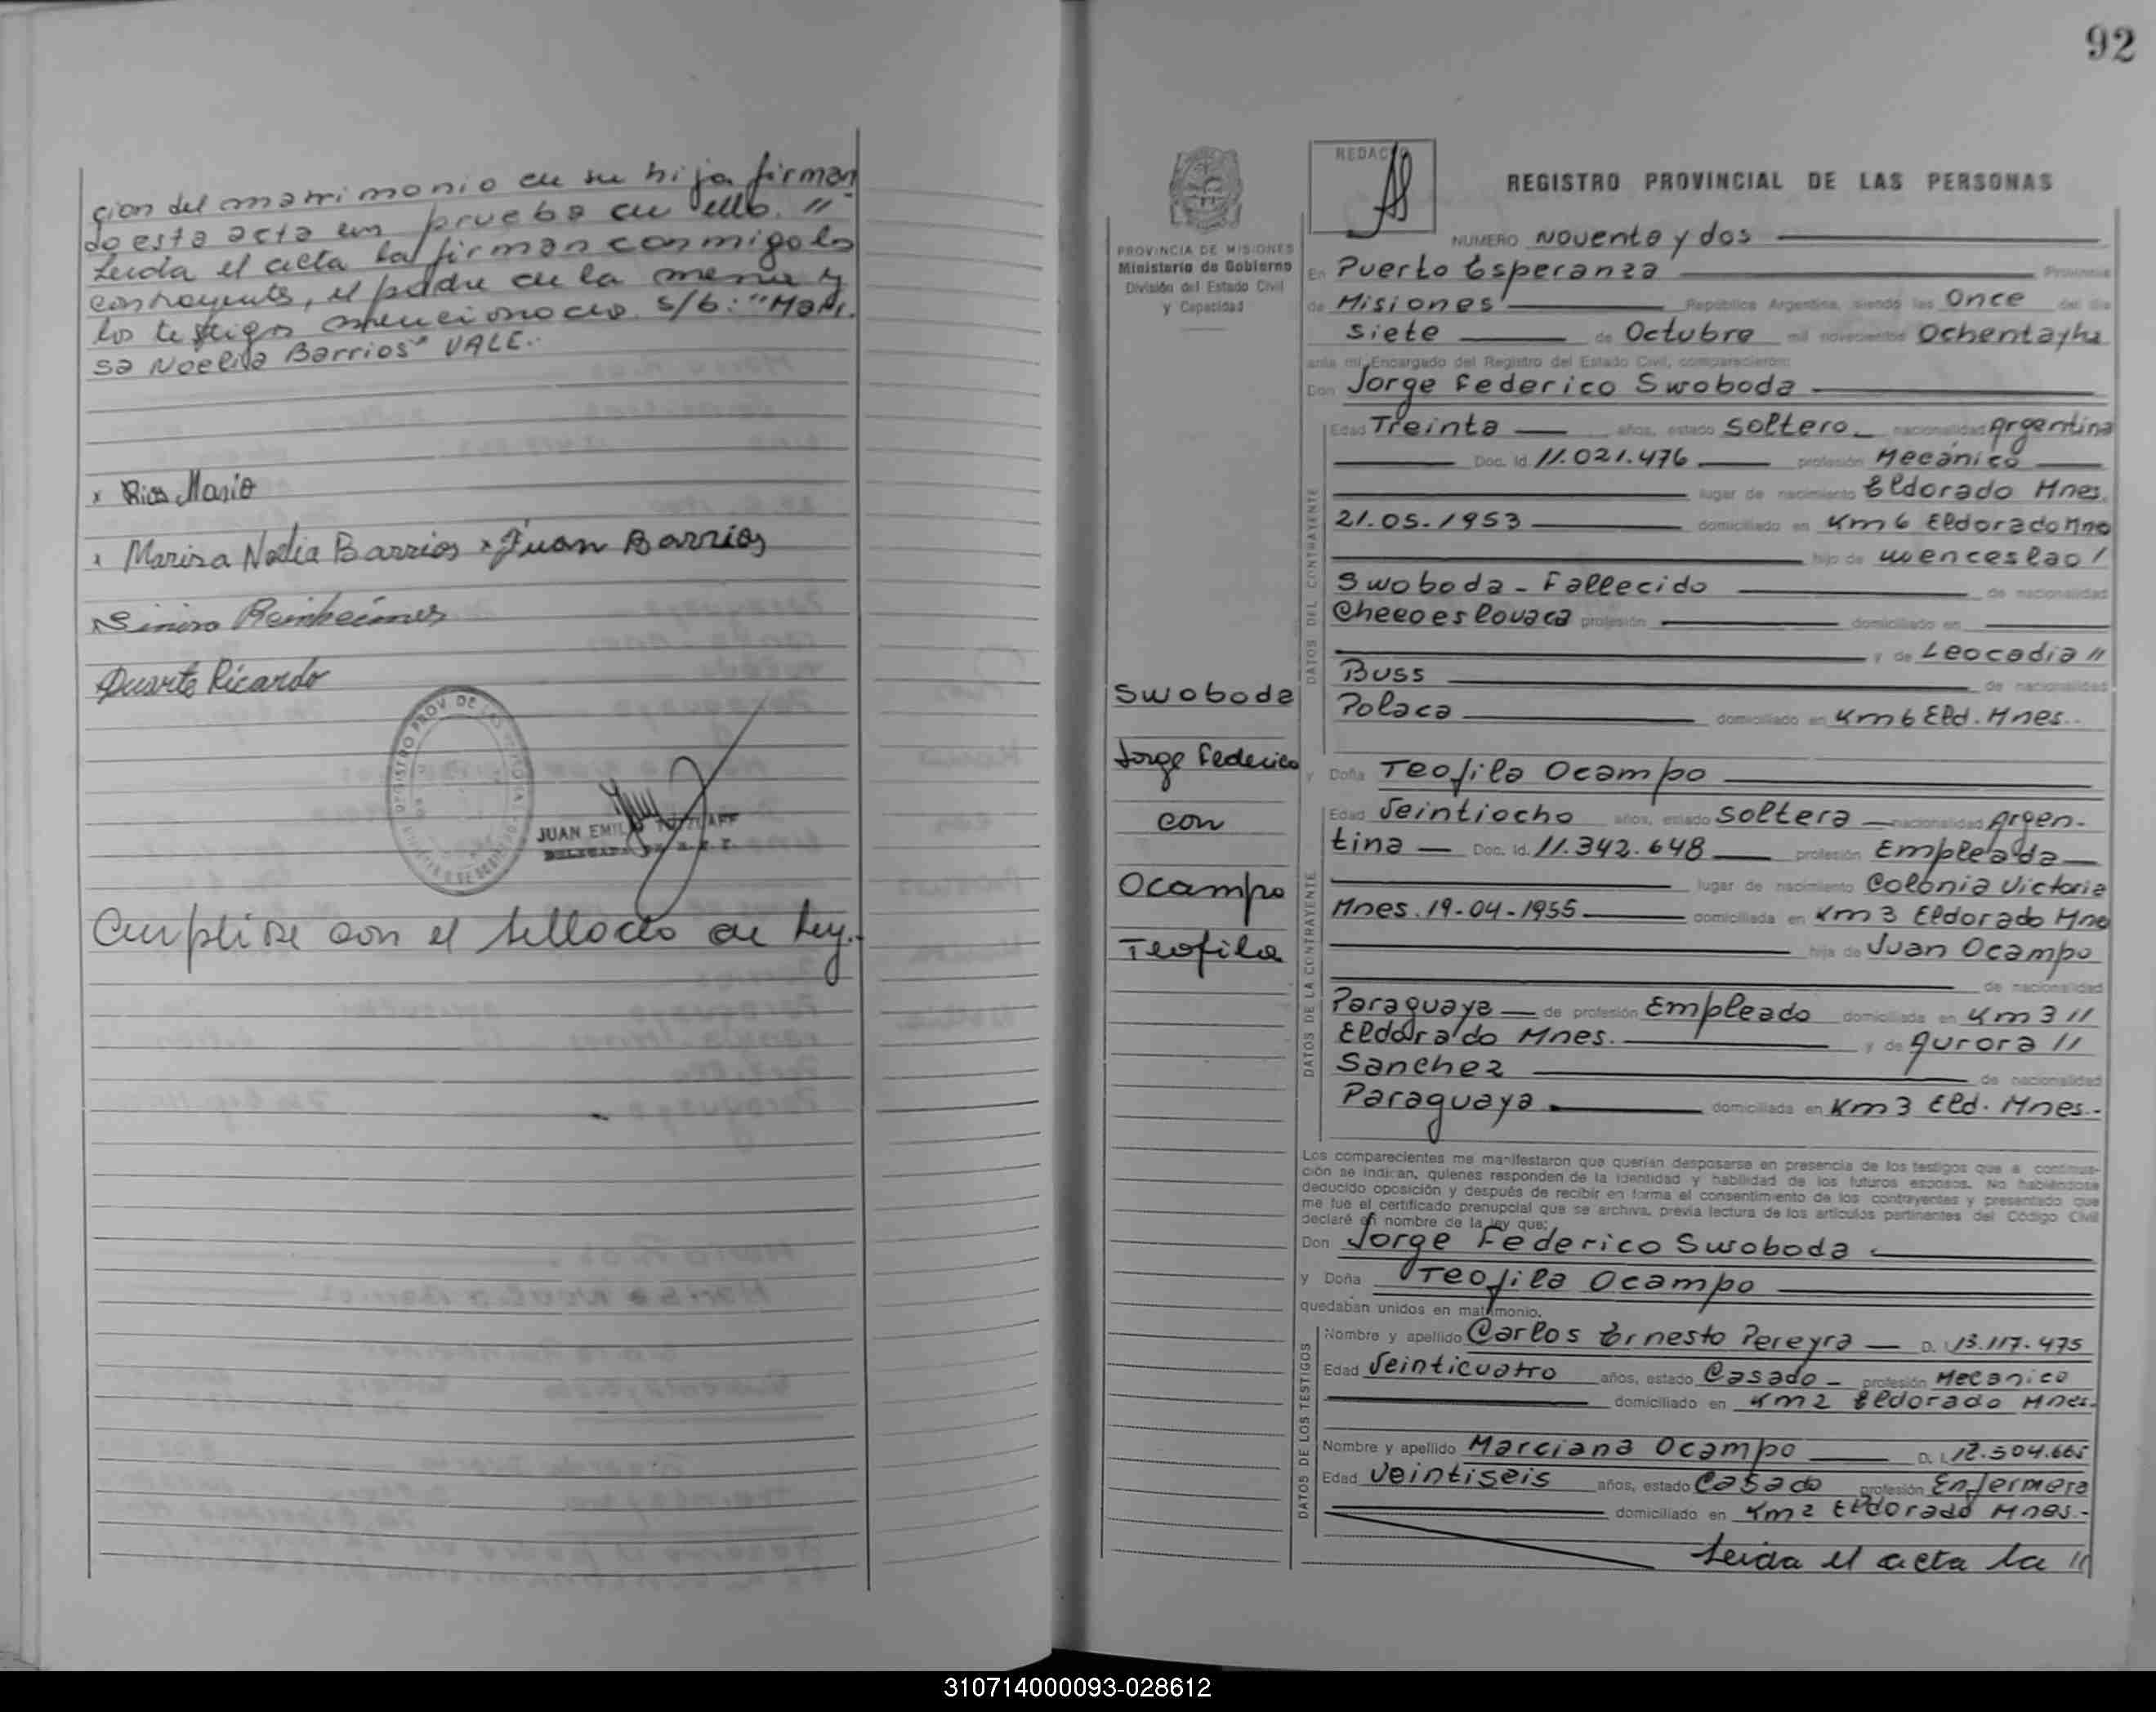 cion del matrimonio de su hija firman
do esta acta en prueba de ello. "
Leida el acta la firman conmigo los
contrayentes, el padre de la menor y
los testigos mencionados. S/b: "Mari
sa Noelia Barrios" VALE.
x Rios Mario
x Marisa Noelia Barrios x Juan Barrios
x Siniro Reinheimer
Duarte Ricardo
JUAN EMIL
Cumplise con el sellado de ley.
92
PROVINCIA DE MISIONES
Ministerio de Gobierno
División del Estado Civil
y Capacidad
Swoboda
Jorge Federico
con
Ocampo
Teofila
REDACTO
REGISTRO PROVINCIAL DE LAS PERSONAS
NUMERO Noventa y dos
En Puerto Esperanza Provincia
de Misiones República Argentina, siendo las Once del día
siete de Octubre mil novecientos Ochenta y tres
ante mí, Encargado del Registro del Estado Civil, comparecieron:
Don Jorge Federico Swoboda
DATOS DEL CONTRAYENTE
Edad Treinta años, estado soltero nacionalidad Argentina
Doc. Id. 11.021.476 profesión Mecánico
lugar de nacimiento Eldorado Mnes.
21.05.1953 domiciliado en Km 6 Eldorado Mne
hijo de Wenceslao /
Swoboda - Fallecido de nacionalidad
Checoeslovaca profesión domiciliado en
y de Leocadia "
Buss de nacionalidad
Polaca domiciliado en Km 6 Eld. Mnes.
y Doña Teofila Ocampo
DATOS DE LA CONTRAYENTE
Edad Veintiocho años, estado soltera nacionalidad Argen-
tina Doc. Id. 11.342.648 profesión Empleada
lugar de nacimiento Colonia Victoria
Mnes. 19-04-1955 domiciliada en Km 3 Eldorado Mne
hija de Juan Ocampo
de nacionalidad
Paraguaya de profesión Empleado domiciliado en Km 3 //
Eldorado Mnes. y de Aurora //
Sanchez de nacionalidad
Paraguaya domiciliada en Km 3 Eld. Mnes.-
Los comparecientes me manifestaron que querían desposarse en presencia de los testigos que a continua-
ción se indican, quienes responden de la identidad y habilidad de los futuros esposos. No habiéndose
deducido oposición y después de recibir en forma el consentimiento de los contrayentes y presentado que
me fue el certificado prenupcial que se archiva, previa lectura de los artículos pertinentes del Código Civil
declaré en nombre de la ley que:
Don Jorge Federico Swoboda
y Doña Teofila Ocampo
quedaban unidos en matrimonio.
DATOS DE LOS TESTIGOS
Nombre y apellido Carlos Ernesto Pereyra D. I. 13.117.475
Edad Veinticuatro años, estado Casado - profesión Mecanico
domiciliado en Km 2 Eldorado Mnes.
Nombre y apellido Marciana Ocampo D. I. 12.504.665
Edad Veintiseis años, estado Casado profesión Enfermera
domiciliado en Km 2 Eldorado Mnes.-
Leida el acta la //
310714000093-028612